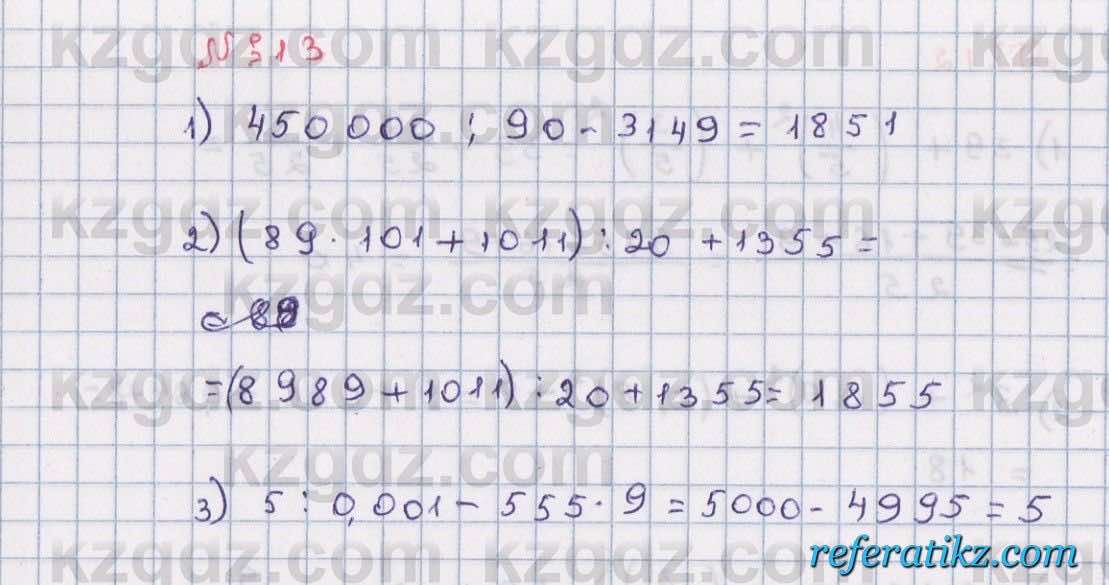 № 313
1) 450 000 : 90 - 3149 = 1851
2) (89 · 101 + 1011) : 20 + 1355 =
= (8989 + 1011) : 20 + 1355 = 1855
3) 5 : 0,001 - 555 · 9 = 5000 - 4995 = 5
kzgdz.com
referatikz.com